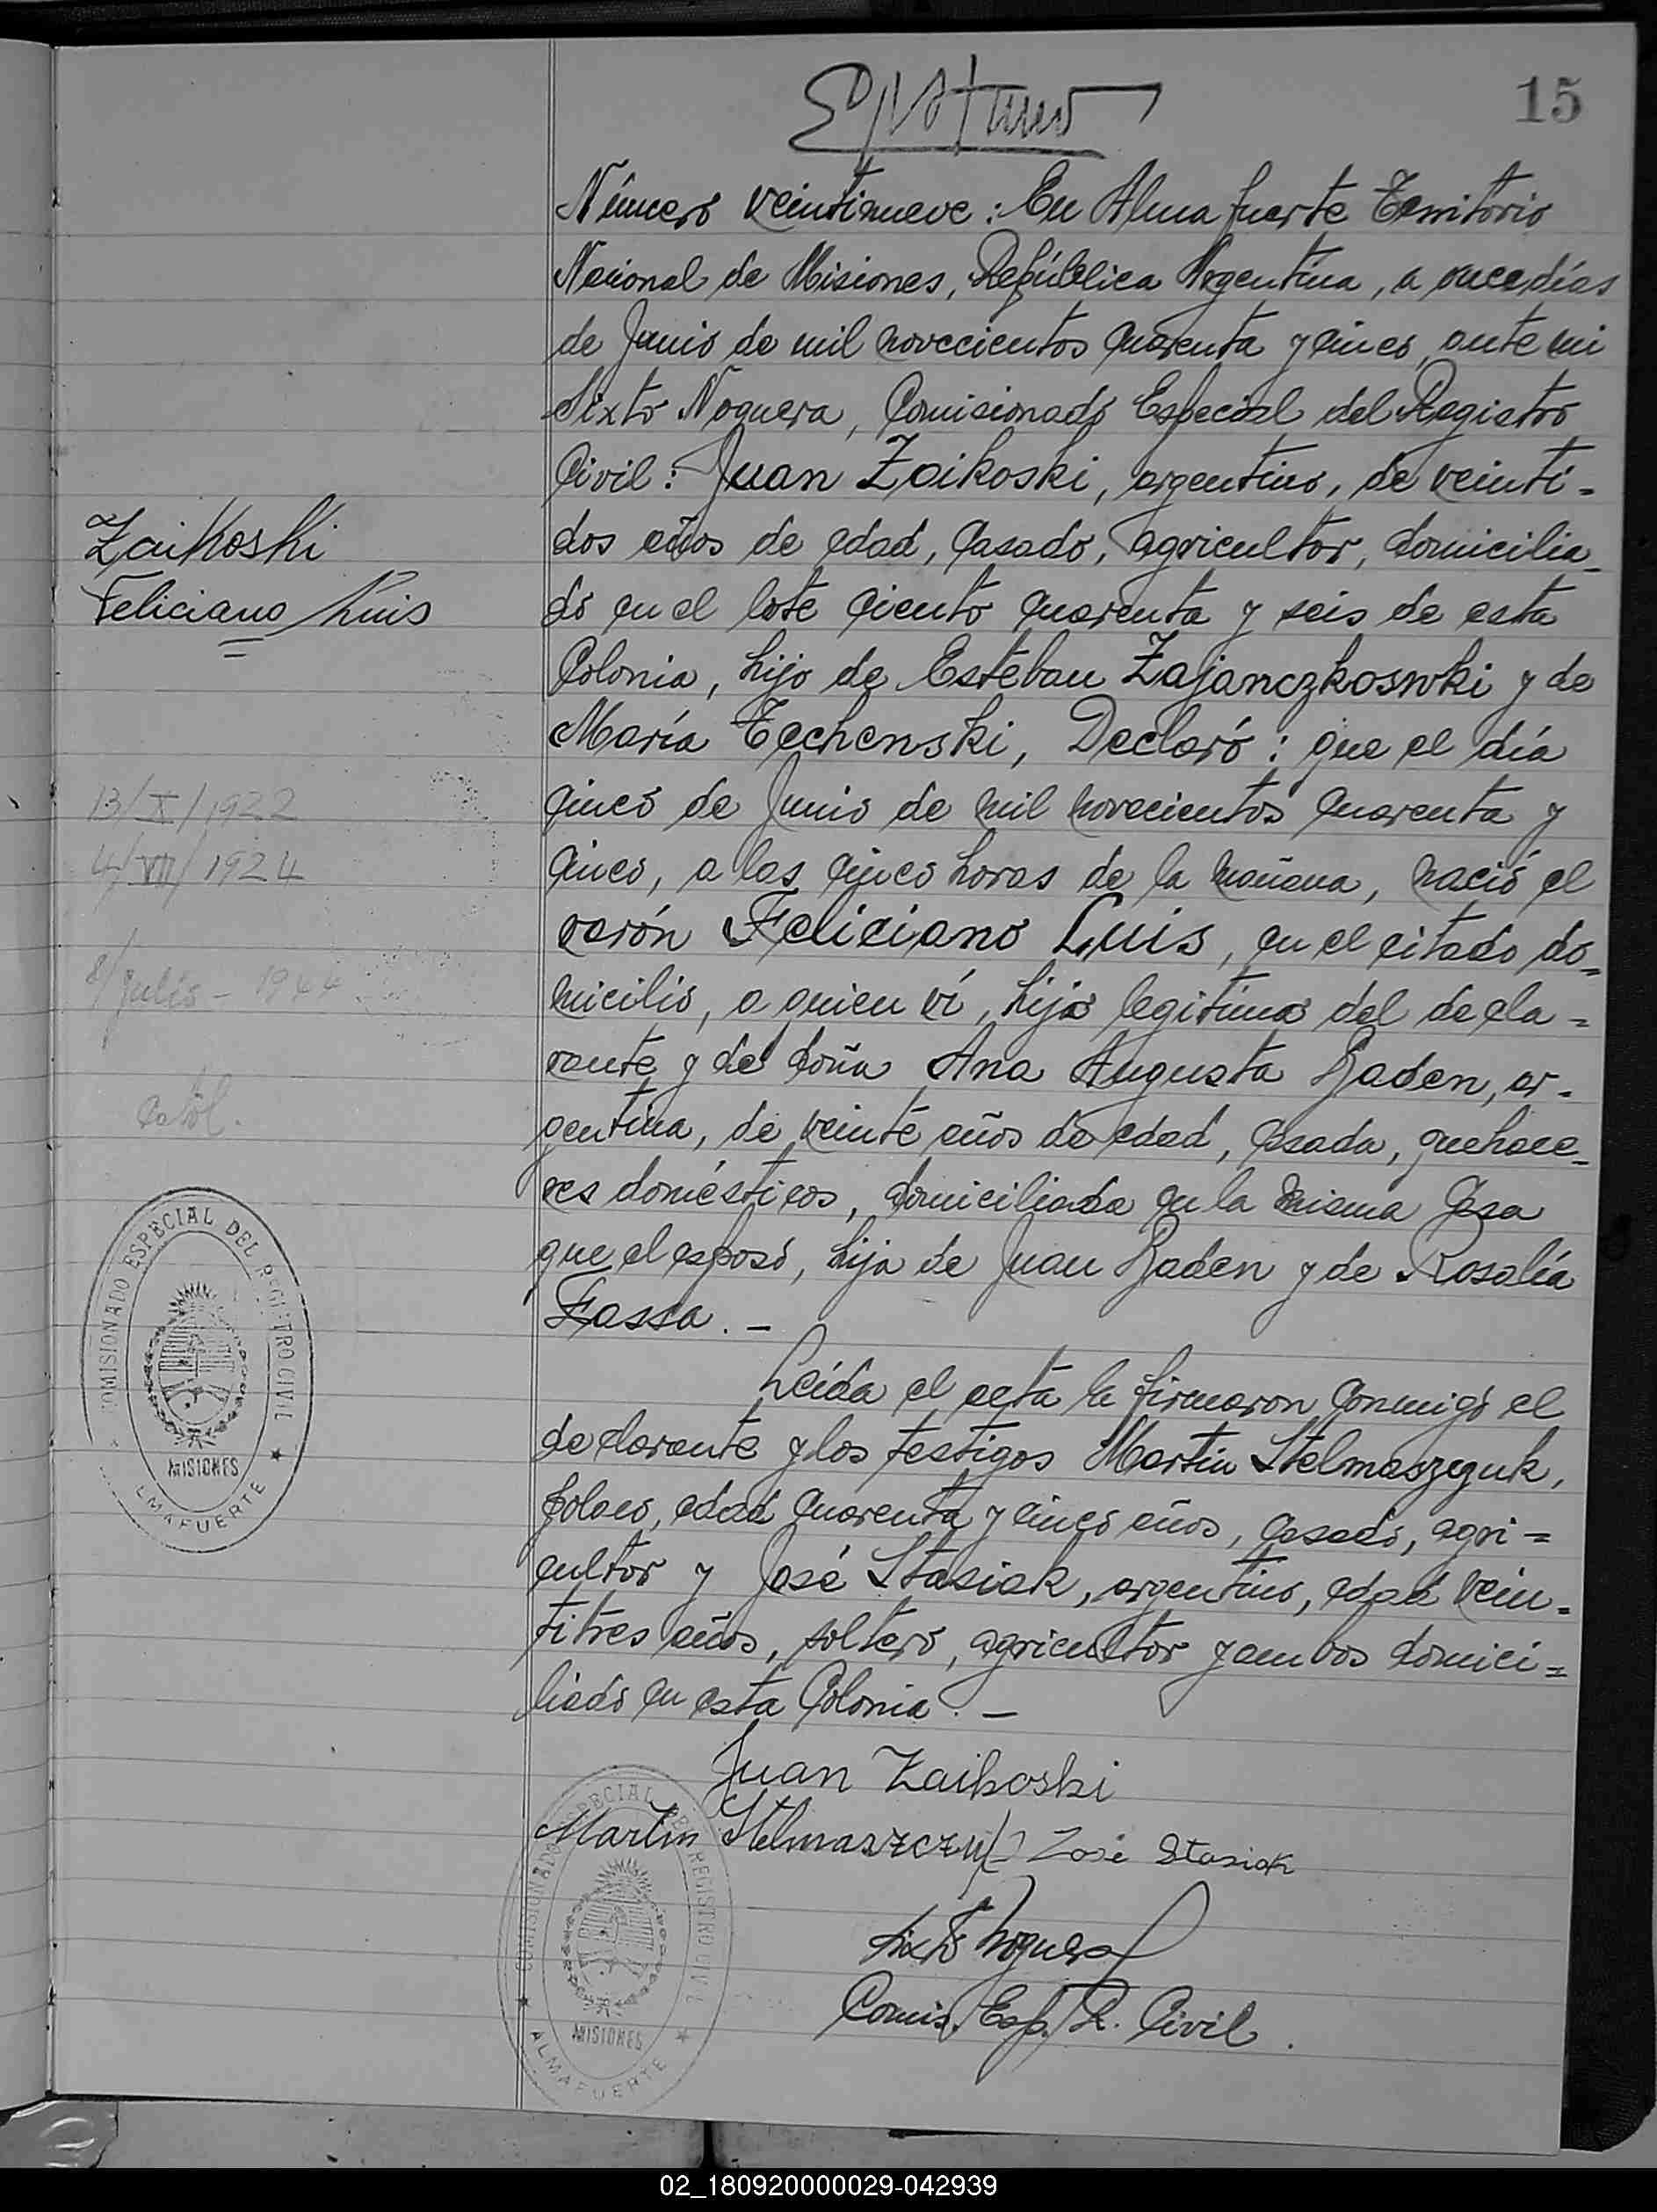 15
Número veintinueve: En Alma fuerte Territorio
Nacional de Misiones, República Argentina, a once días
de Junio de mil novecientos cuarenta y cinco, ante mi
Sixto Noguera, Comisionado Especial del Registro
Civil: Juan Zaikoski, argentino, de veinti-
dos años de edad, casado, agricultor, domicilia-
do en el lote ciento cuarenta y seis de esta
Colonia, hijo de Esteban Zajanczkoswki y de
María Techenski, Declaró: que el día
cinco de Junio de mil novecientos cuarenta y
cinco, a las cinco horas de la mañana, nació el
varón Feliciano Luis, en el citado do-
micilio, a quien ví, hijo legitimo del decla-
rante y de doña Ana Augusta Raden, ar-
gentina, de veinte años de edad, casada, quehace-
res domésticos, domiciliada en la misma casa
que el esposo, hija de Juan Raden y de Rosalía
Fassa.-
Leída el acta la firmaron conmigo el
declarante y los testigos Martin Stelmaszcguk,
polaco, edad cuarenta y cinco años, casado, agri-
cultor y José Stasiak, argentino, edad vein-
titres años, soltero, agricultor y ambos domici-
liado en esta Colonia.-
Zaikoski
Feliciano Luis
13/X/1922
4/VII/1924
8/Julio - 1944
Catól.
COMISIONADO ESPECIAL DEL REGISTRO CIVIL
MISIONES
ALMAFUERTE
Juan Zaikoski
Martin Stelmaszczuk José Stasiak
Sixto Noguera
Comis. Esp. R. Civil.
COMISIONADO ESPECIAL DEL REGISTRO CIVIL
MISIONES
ALMAFUERTE
02_180920000029-042939